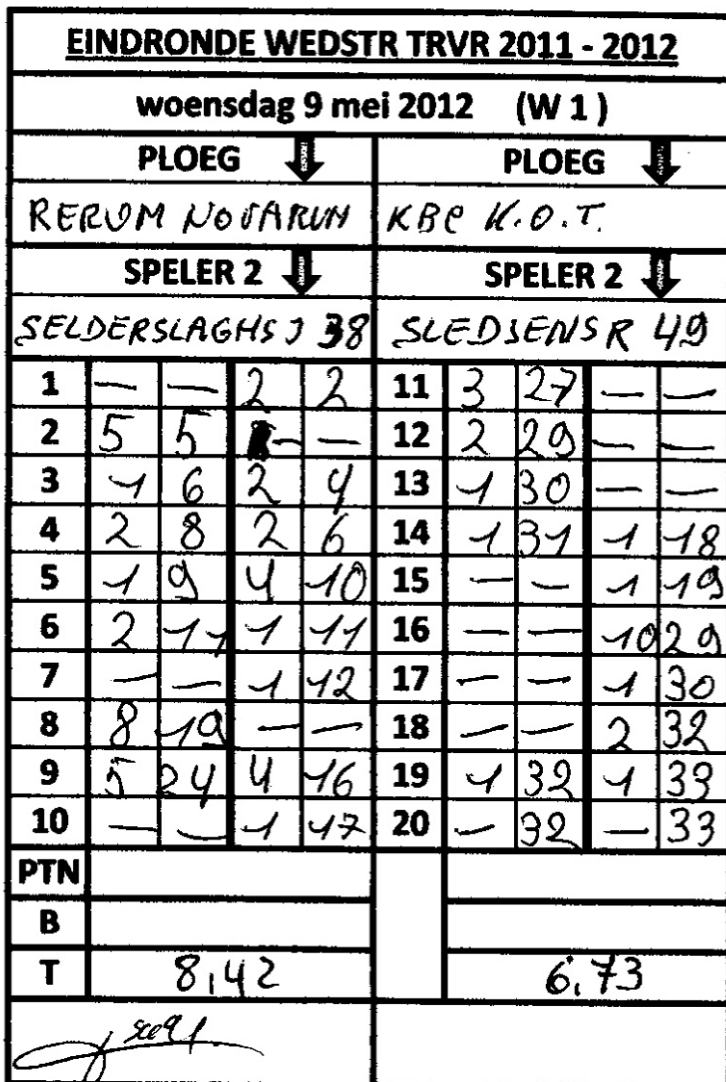 EINDRONDE WEDSTR TRVR 2011 - 2012
woensdag 9 mei 2012 (W 1)
PLOEG PLOEG
RERUM NOVARUM KBC K.O.T.
SPELER 2 SPELER 2
SELDERSLAGHS J 38 SLEDSENS R 49
1 — — 2 2 11 3 27 — —
2 5 5 — — 12 2 29 — —
3 1 6 2 4 13 1 30 — —
4 2 8 2 6 14 1 31 1 18
5 1 9 4 10 15 — — 1 19
6 2 11 1 11 16 — — 10 29
7 — — 1 12 17 — — 1 30
8 8 19 — — 18 — — 2 32
9 5 24 4 16 19 1 32 1 33
10 — — 1 17 20 — 32 — 33
PTN
B
T 8,42 6,73